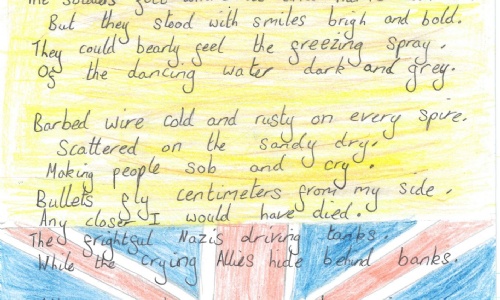 But they stood with smiles brigh and bold.
They could bearly feel the freezing spray.
Of the dancing water dark and grey.
Barbed wire cold and rusty on every spire.
Scattered on the sandy dry.
Making people sob and cry.
Bullets fly centimeters from my side.
Any closer I would have died.
The frightful Nazis driving tanks.
While the crying Allies hide behind banks.